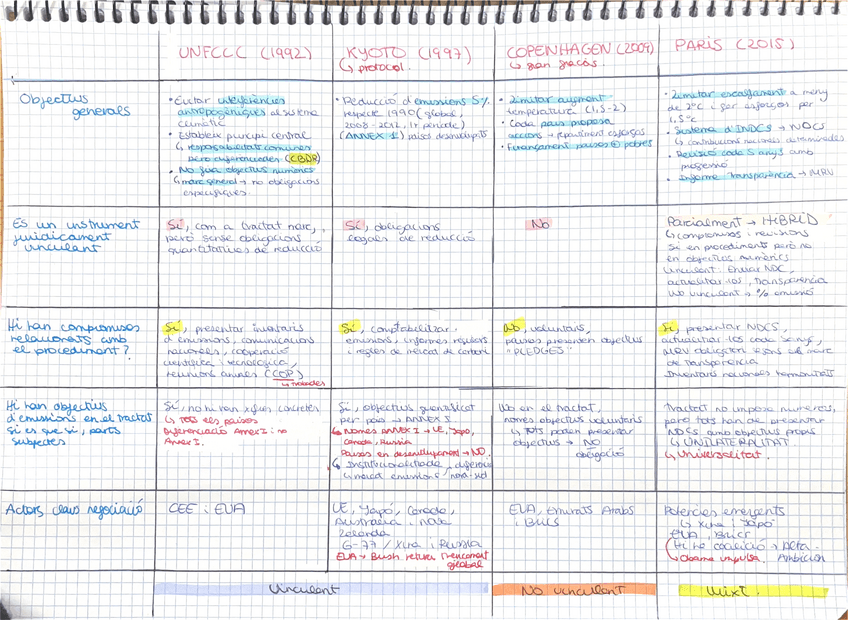 UNFCCC (1992)
KYOTO (1997)
↳ protocol.
COPENHAGEN (2009)
↳ gran fracàs.
PARÍS (2015)
Objectius
generals
• Evitar interferències
antropogèniques al sistema
climàtic
• Establex principi central
↳ responsabilitats comunes
però diferenciades (CBDR)
• No fixa objectius numèrics
↳ marc general → no obligacions
específiques.
• Reducció d'emissions 5%
respecte 1990 (global,
2008-2012, 1r període)
(ANNEX 1) països desenvolupats
• Limitar augment
temperatura (1,5-2)
• Cada país proposa
accions → repartiment esforços
• Finançament països ⊕ pobres
• Limitar escalfament a meny
de 2°C i fer esforços per
1,5°C
• Sistema d'INDCs → NDCs
↳ contribucions nacionals determinades
• Revisió cada 5 anys amb
progressió
• Informe transparència → MRV
És un instrument
jurídicament
vinculant
Sí, com a tractat marc,
però sense obligacions
quantitatives de reducció
Sí, obligacions
legals de reducció
No
Parcialment → HÍBRID
↳ compromisos i revisions
Sí en procediments però no
en objectius numèrics
Vinculant: Enviar NDC,
actualitzar-los, transparència
No vinculant → % emissió
Hi han compromisos
relacionats amb
el procediment?
Sí, presentar inventaris
d'emissions, comunicacions
nacionals, cooperació
científica i tecnològica,
reunions anuals (COP)
↳ trobades
Sí, comptabilitzar
emissions, informes regulars
i regles de mercat de carboni
No, voluntaris,
països presenten objectius
"PLEDGES"
Sí, presentar NDCs,
actualitzar-los cada 5 anys,
MRV obligatori segons el marc
de transparència
Inventaris nacionals
Hi han objectius
d'emissions en el tractat
si és que sí, parts
subjectes
Sí, no hi han xifres concretes
↳ TOTS els països
Diferenciació Annex I i no
Annex I.
Sí, objectius quantificat
per país → ANNEX I
↳ Només ANNEX I → UE, Japó,
Canadà, Russia
Països en desenvolupament → NO.
↳ Institucionalitzada diferència
↳ mercat emissions / nord-sud
No en el tractat,
només objectius voluntaris
↳ TOTS poden presentar
objectius → NO
obligació
Tractat no imposa números,
però tots han de presentar
NDCs amb objectius propis
↳ UNILATERALITAT
↳ Universalitat.
Actors claus negociació
CEE i EUA
UE, Japó, Canadà,
Austràlia i Nova
Zelanda
G-77 / Xina i Russia
EUA → Bush retira
global
EUA, Emirats Àrabs
i BRICS
Potències emergents
↳ Xina i Japó
EUA i BRICS
Hi ha coalició → Alta
↳ Obama impulsa. Ambición
Vinculant
No vinculant
Mixt.